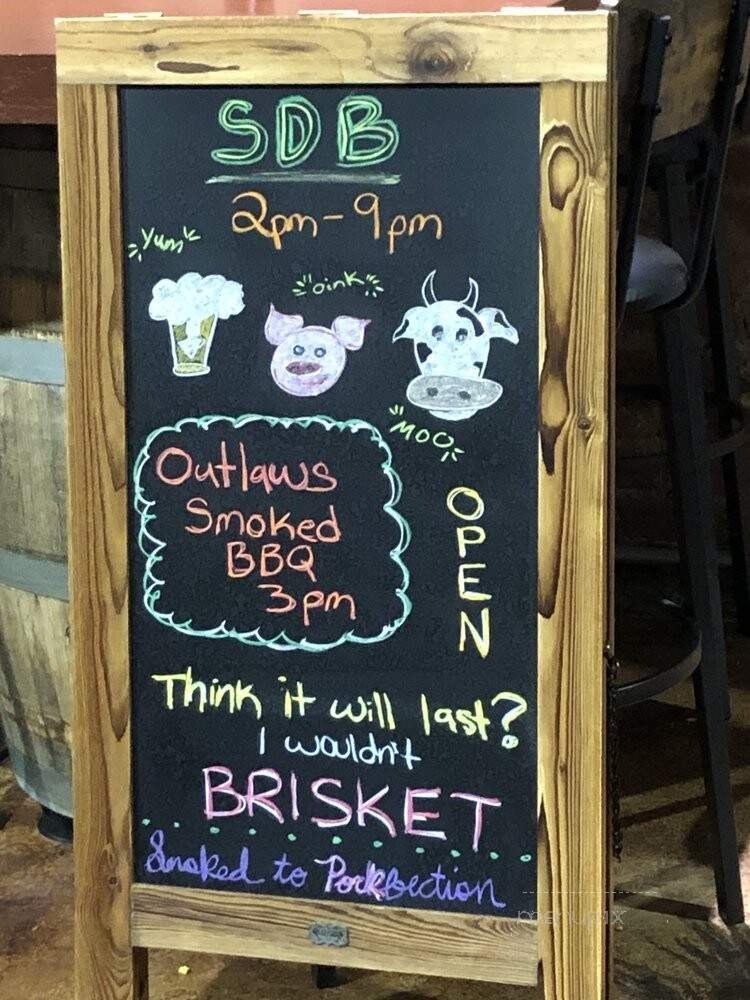 SDB
2pm-9pm
Yum
oink
MOO
Outlaws
Smoked
BBQ
3pm
OPEN
Think it will last?
I wouldn't
BRISKET
Smoked to Porkfection
menupix